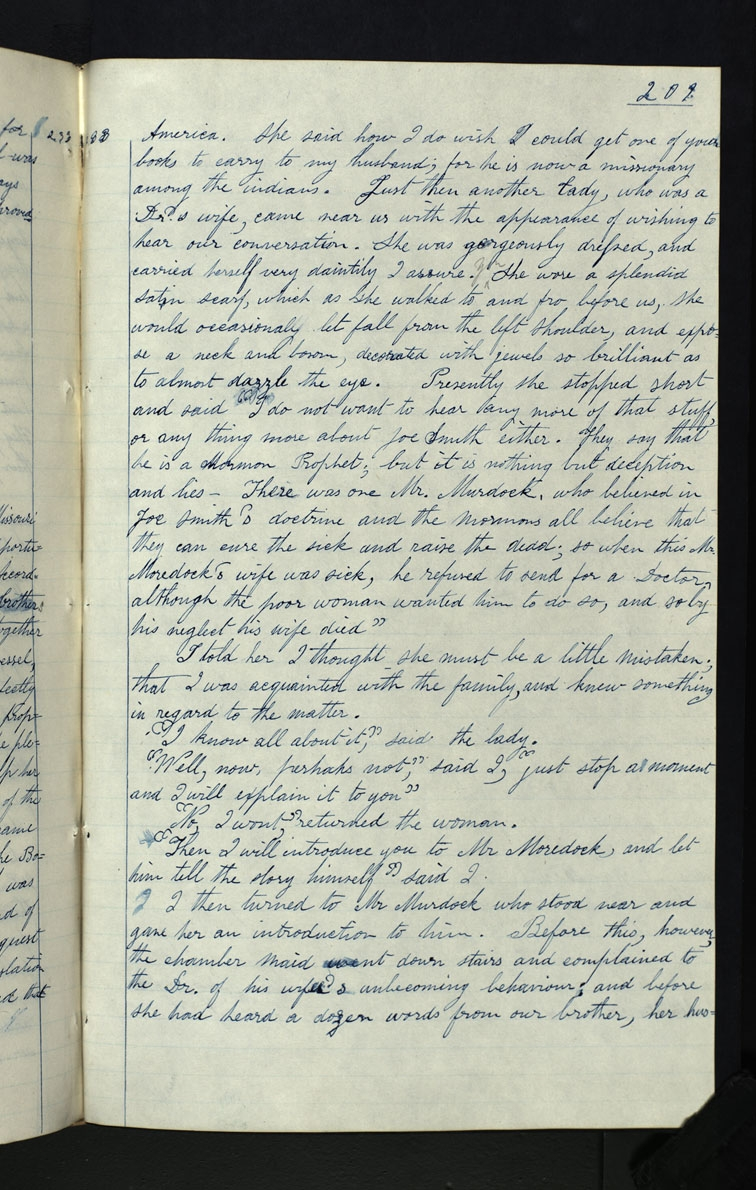 209
America. She said how I do wish I could get one of your
books to carry to my husband; for he is now a missionary
among the indians. Just then another lady, who was a
Dr.'s wife, came near us with the appearance of wishing to
hear our conversation. She was gorgeously dressed, and
carried herself very daintily I assure. yn She wore a splendid
satin scarf, which as she walked to and fro before us, she
would occasionally let fall from the left shoulder, and expo=
se a neck and bosom, decorated with jewels so brilliant as
to almost dazzle the eye. Presently she stopped short
and said "I do not want to hear any more of that stuff,
or any thing more about Joe Smith either. They say that
he is a Mormon Prophet; but it is nothing but deception
and lies — There was one Mr. Murdock, who believed in
Joe Smith's doctrine and the mormons all believe that
they can cure the sick and raise the dead; so when this Mr.
Moredock's wife was sick, he refused to send for a Doctor,
although the poor woman wanted him to do so, and so by
his neglect his wife died"
I told her I thought she must be a little mistaken;
that I was acquainted with the family, and knew something
in regard to the matter.
"I know all about it," said the lady.
"Well, now, perhaks not," said I, "just stop a moment
and I will explain it to you"
"No, I wont," returned the woman.
"Then I will introduce you to Mr Moredock, and let
him tell the story himself" said I.
I then turned to Mr Murdock who stood near and
gave her an introduction to him. Before this, however,
the chamber maid went down stairs and complained to
the Dr. of his wife's unbecoming behaviour; and before
she had heard a dozen words from our brother, her hus=